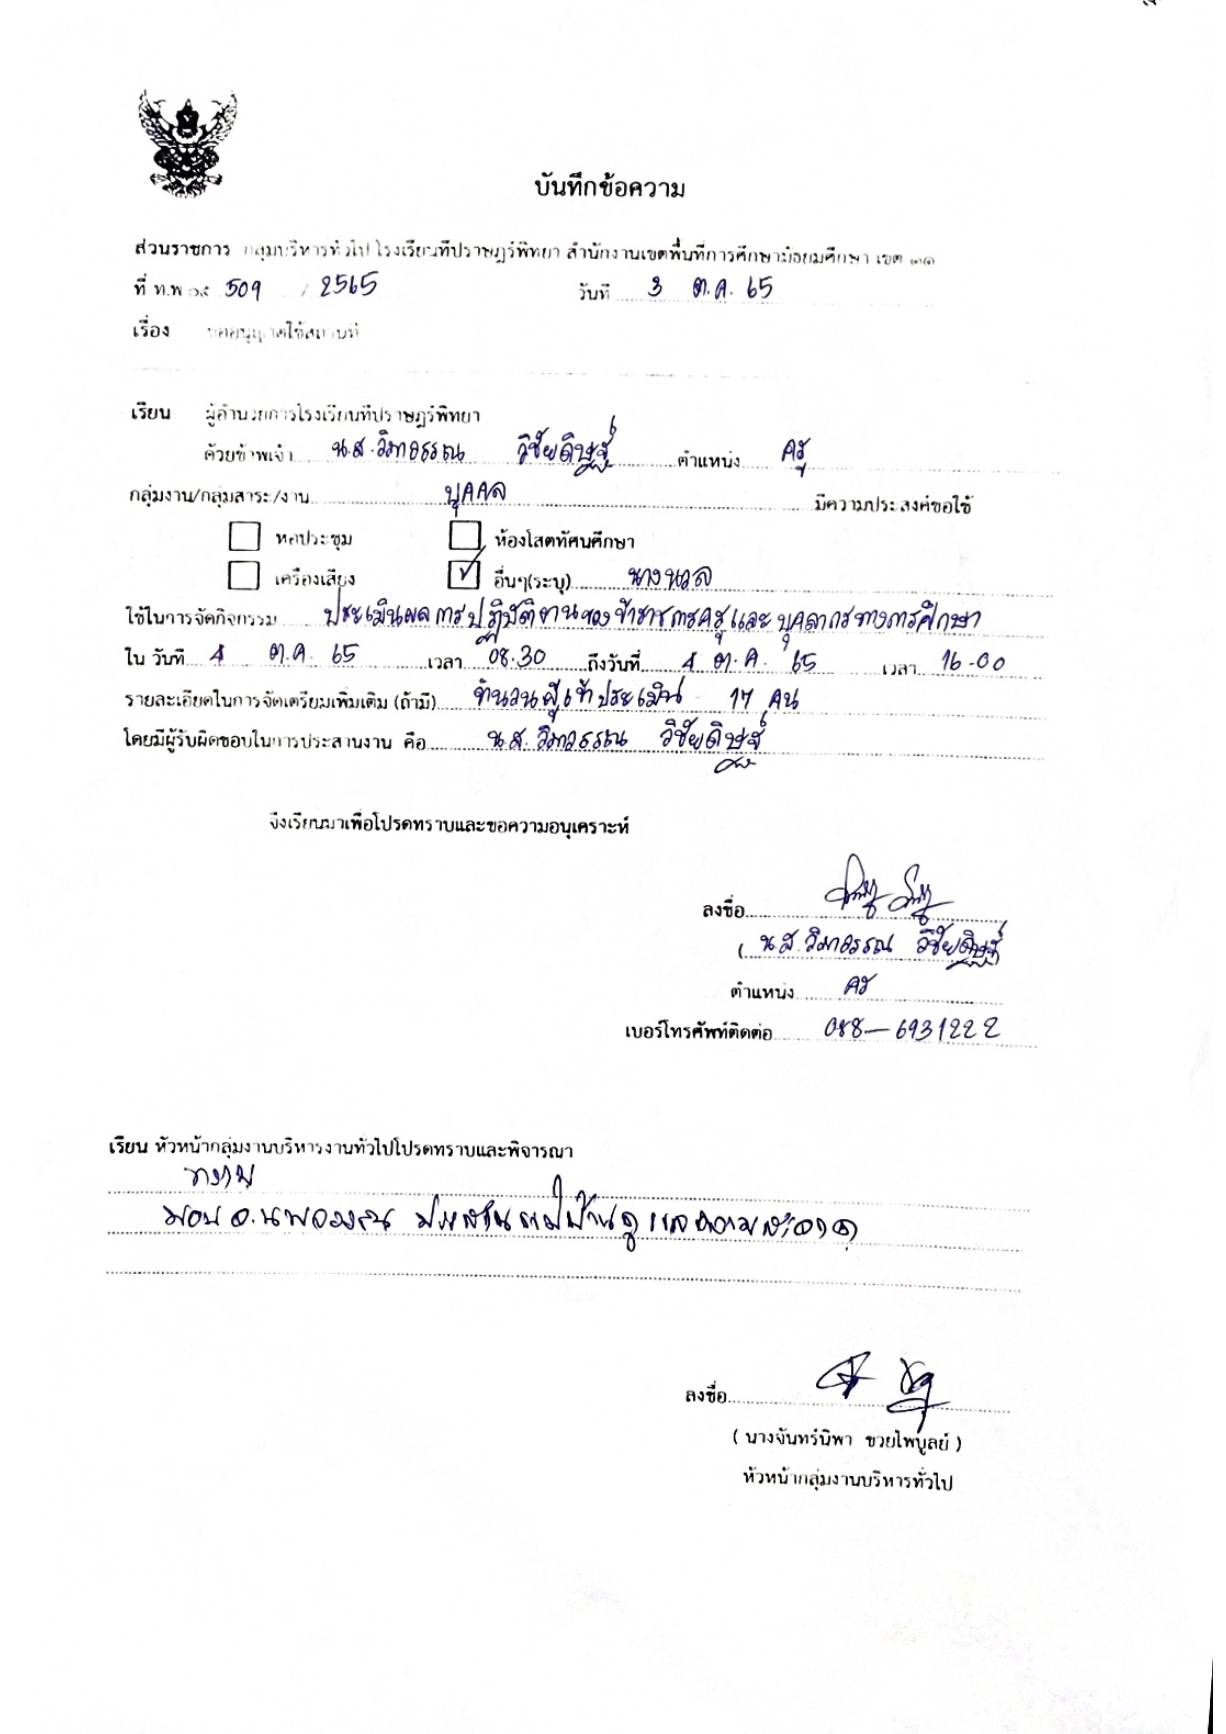 บันทึกข้อความ
ส่วนราชการ กลุ่มบริหารทั่วไป โรงเรียนทีปราษฎร์พิทยา สำนักงานเขตพื้นที่การศึกษามัธยมศึกษา เขต ๑๑
ที่ ท.พ ๐๕ 509 / 2565 วันที่ 3 ต.ค. 65
เรื่อง ขออนุญาตใช้สถานที่
เรียน ผู้อำนวยการโรงเรียนทีปราษฎร์พิทยา
ด้วยข้าพเจ้า น.ส.วิมาวรรณ วิชัยดิษฐ์ ตำแหน่ง ครู
กลุ่มงาน/กลุ่มสาระ/งาน บุคคล มีความประสงค์ขอใช้
หอประชุม ห้องโสตทัศนศึกษา
เครื่องเสียง อื่นๆ(ระบุ) นางนวล
ใช้ในการจัดกิจกรรม ประเมินผลการปฏิบัติงานของข้าราชการครูและบุคลากรทางการศึกษา
ใน วันที่ 4 ต.ค. 65 เวลา 08.30 ถึงวันที่ 4 ต.ค. 65 เวลา 16.00
รายละเอียดในการจัดเตรียมเพิ่มเติม (ถ้ามี) จำนวนผู้เข้าประเมิน 17 คน
โดยมีผู้รับผิดชอบในการประสานงาน คือ น.ส. วิมาวรรณ วิชัยดิษฐ์
จึงเรียนมาเพื่อโปรดทราบและขอความอนุเคราะห์
ลงชื่อ
( น.ส.วิมาวรรณ วิชัยดิษฐ์ )
ตำแหน่ง ครู
เบอร์โทรศัพท์ติดต่อ 088-6931222
เรียน หัวหน้ากลุ่มงานบริหารงานทั่วไปโปรดทราบและพิจารณา
ทราบ
มอบ อ.นพวรรณ ประสานแม่บ้านดูแลความสะอาด
ลงชื่อ
( นางจันทร์นิพา ขวยไพบูลย์ )
หัวหน้ากลุ่มงานบริหารทั่วไป